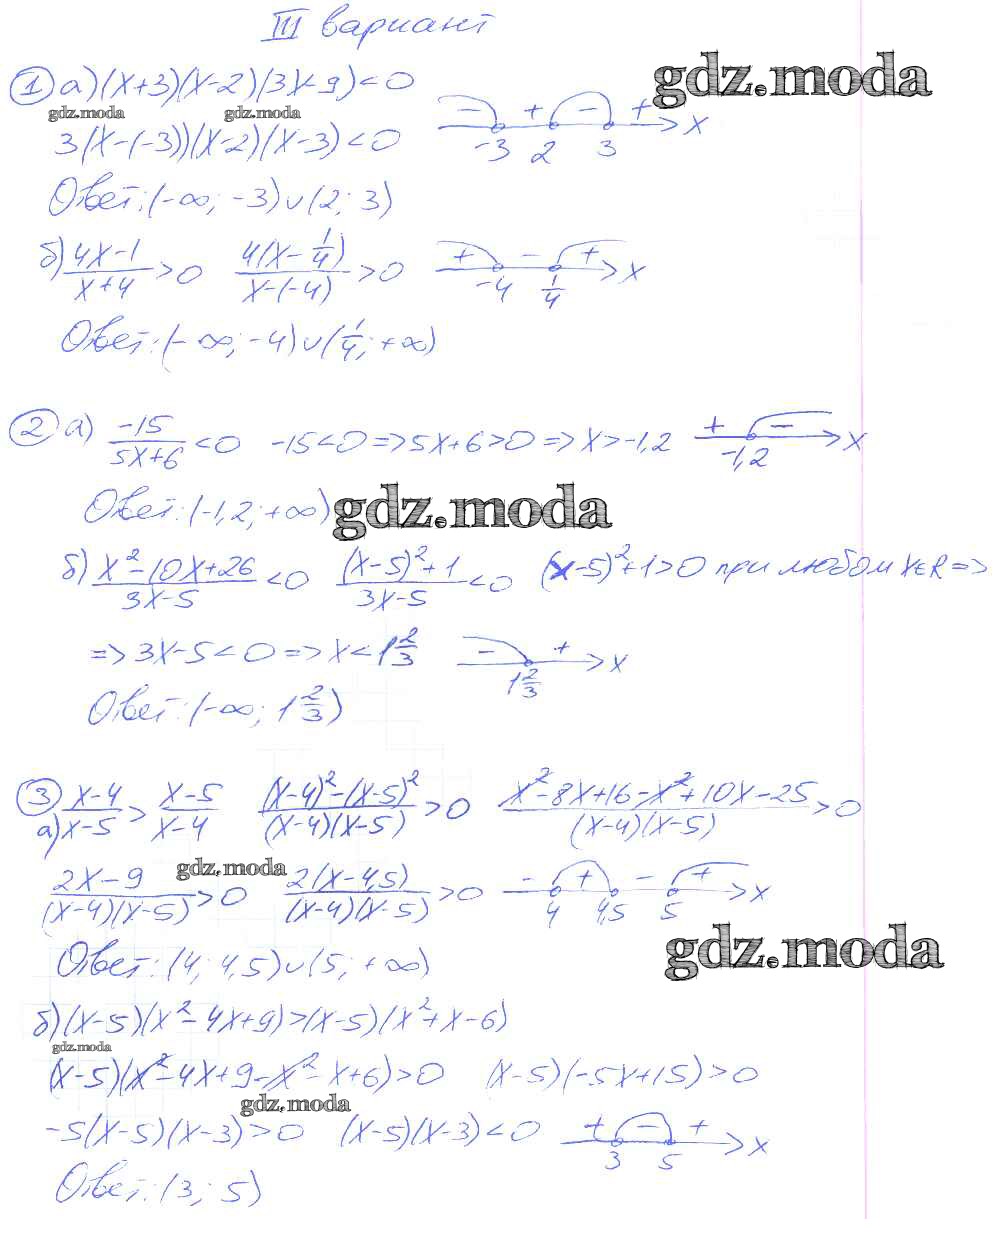 III вариант
① а) (x+3)(x-2)(3x-9)<0
gdz.moda
3(x-(-3))(x-2)(x-3)<0
- + - + x
-3 2 3
Ответ: (-∞; -3)∪(2; 3)
б) (4x-1)/(x+4)>0 4(x-1/4)/(x-(-4))>0
+ - + x
-4 1/4
Ответ: (-∞; -4)∪(1/4; +∞)
② а) -15/(5x+6)<0 -15<0 => 5x+6>0 => x>-1,2
+ - x
-1,2
Ответ: (-1,2; +∞)
gdz.moda
б) (x²-10x+26)/(3x-5)<0 ((x-5)²+1)/(3x-5)<0 (x-5)²+1>0 при любом x∈R =>
=> 3x-5<0 => x<1 2/3
- + x
1 2/3
Ответ: (-∞; 1 2/3)
③ а) (x-4)/(x-5)>(x-5)/(x-4) ((x-4)²-(x-5)²)/((x-4)(x-5))>0 (x²-8x+16-x²+10x-25)/((x-4)(x-5))>0
gdz.moda
(2x-9)/((x-4)(x-5))>0 2(x-4,5)/((x-4)(x-5))>0
- + - + x
4 4,5 5
Ответ: (4; 4,5)∪(5; +∞)
gdz.moda
б) (x-5)(x²-4x+9)>(x-5)(x²+x-6)
gdz.moda
(x-5)(x²-4x+9-x²-x+6)>0 (x-5)(-5x+15)>0
gdz.moda
-5(x-5)(x-3)>0 (x-5)(x-3)<0
+ - + x
3 5
Ответ: (3; 5)
gdz.moda
gdz.moda